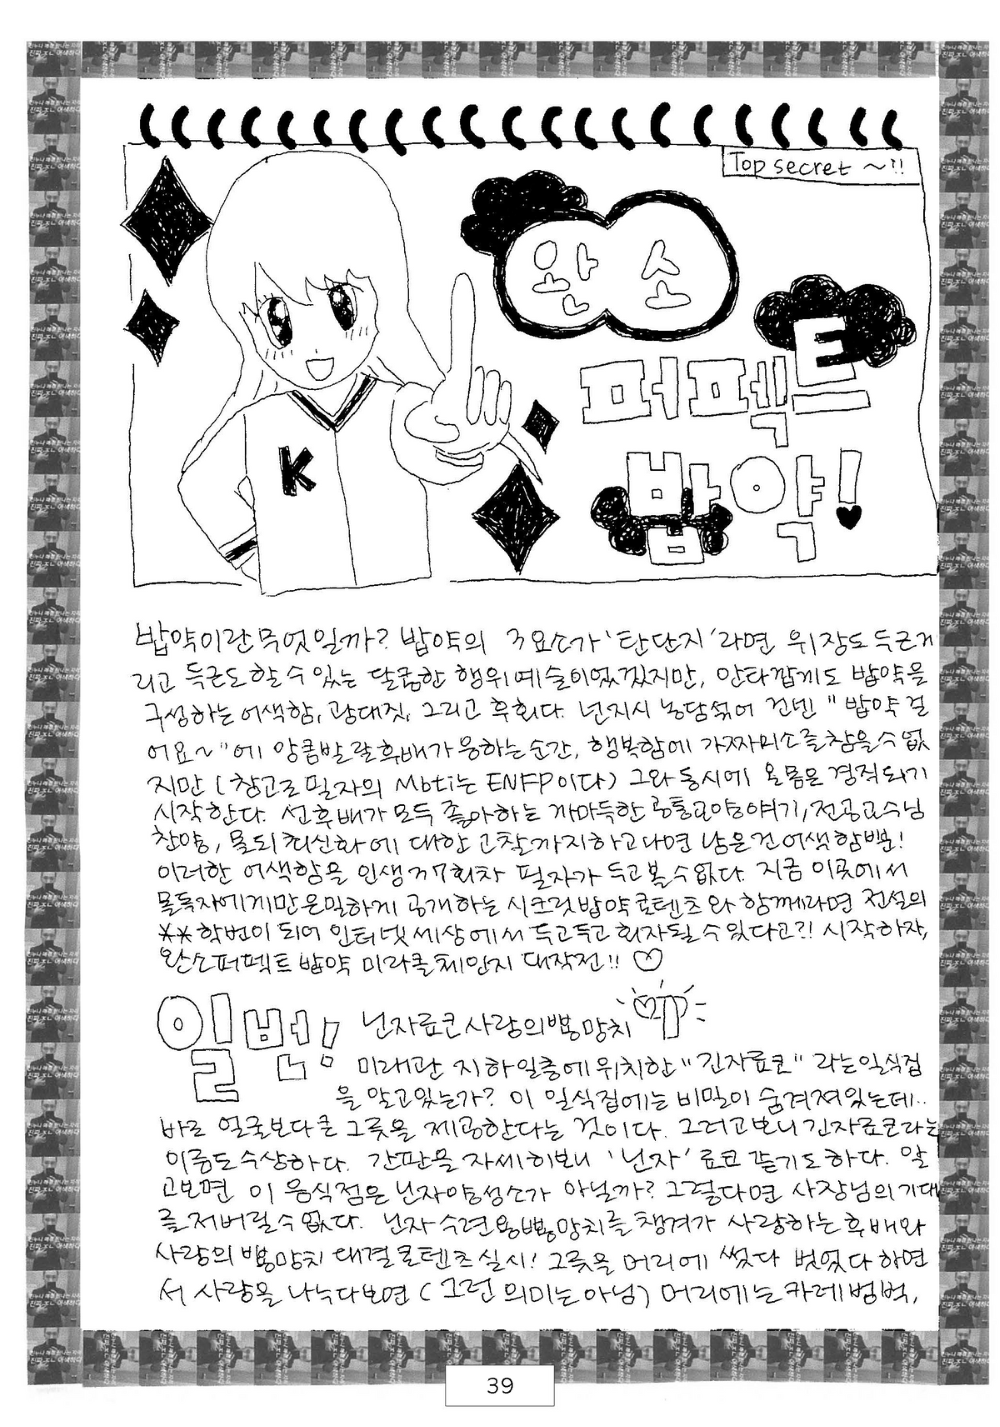 Top secret ~!!
완소
퍼펙트
밥약!
K
밥약이란 무엇일까? 밥약의 3요소가 '탄단지'라면 위장도 득근거
리고 득근도 할 수 있는 달콤한 행위예술이었겠지만, 안타깝게도 밥약을
구성하는 어색함, 광대짓, 그리고 후회다. 넌지시 농담섞어 건넨 "밥약 걸
어요~"에 앙큼발랄 후배가 응하는 순간, 행복함에 가짜미소를 참을 수 없
지만 (참고로 필자의 Mbti는 ENFP이다) 그와 동시에 온몸은 경직되기
시작한다. 선후배가 모두 좋아하는 까마득한 공통교양이야기, 전공교수님
찬양, 물되 최신화에 대한 고찰까지 하고 나면 남은 건 어색함뿐!
이러한 어색함을 인생 77회차 필자가 두고 볼 수 없다. 지금 이곳에서
물독자에게만 은밀하게 공개하는 시크릿 밥약 콘텐츠와 함께라면 전설의
**학번이 되어 인터넷 세상에서 두고두고 회자될 수 있다고?! 시작하자,
완소퍼펙트 밥약 미라클 체인지 대작전!! ♡
일번! 닌자료코 사랑의 뿅망치
미래관 지하일층에 위치한 "긴자료코" 라는 일식점
을 알고있는가? 이 일식집에는 비밀이 숨겨져있는데..
바로 얼굴보다 큰 그릇을 제공한다는 것이다. 그러고보니 긴자료코라는
이름도 수상하다. 간판을 자세히보니 '닌자' 료코 같기도 하다. 알
고보면 이 음식점은 닌자양성소가 아닐까? 그렇다면 사장님의 기대
를 저버릴 수 없다. 닌자 수련용 뿅망치를 챙겨가 사랑하는 후배와
사랑의 뿅망치 대결 콘텐츠 실시! 그릇을 머리에 썼다 벗었다 하면
서 사랑을 나눅다보면 (그런 의미는 아님) 머리에는 카레 범벅,
39